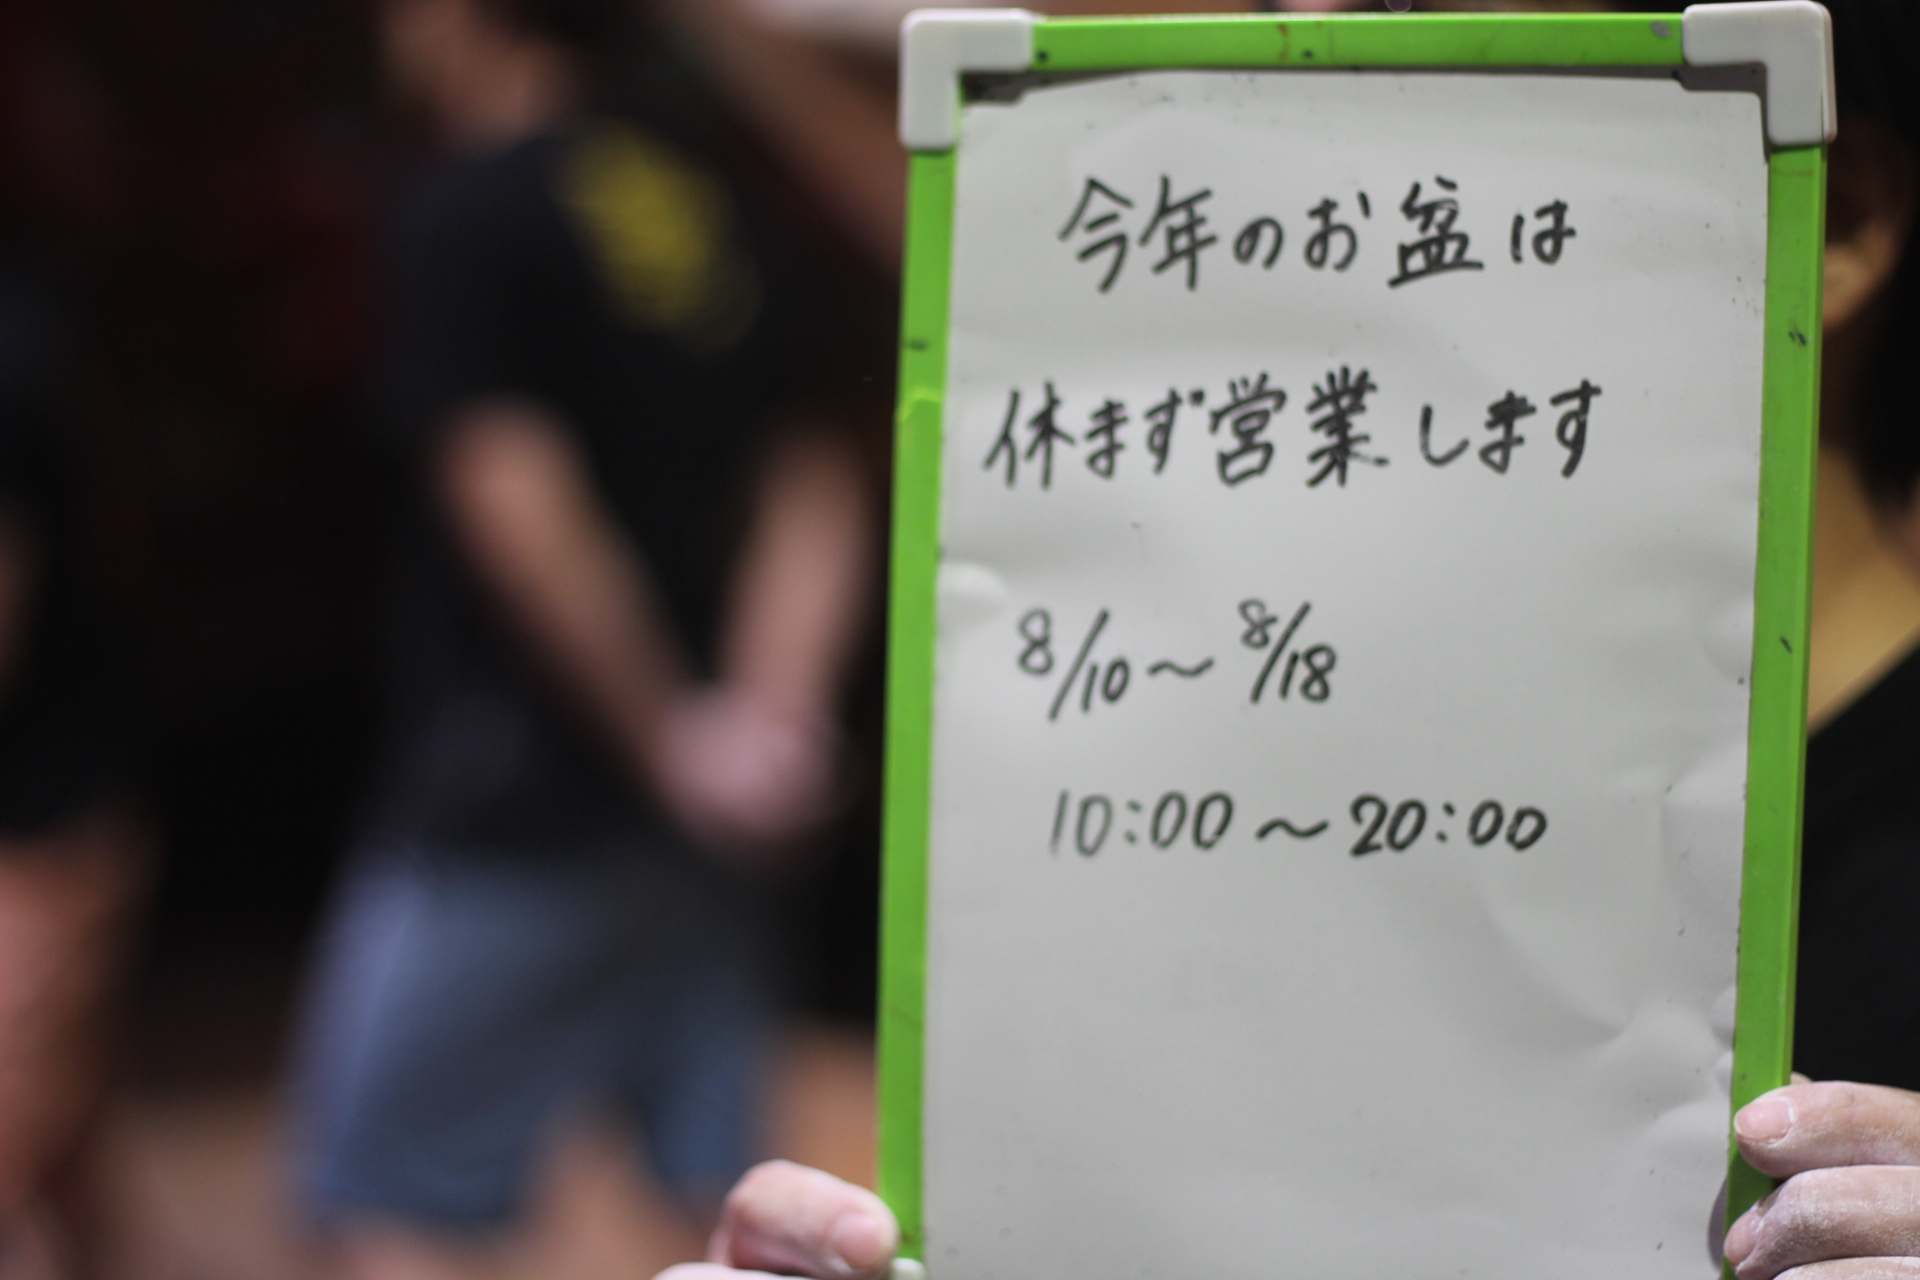 今年のお盆は
休まず営業します
8/10〜8/18
10:00〜20:00